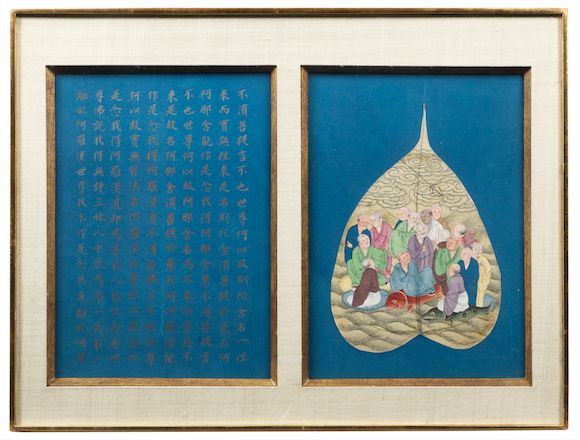 不須菩提言不也世尊何以故斯陀含名一往
來而實無往來是名斯陀含須菩提於意云何
阿那含能作是念我得阿那含果不須菩提言
不也世尊何以故阿那含名為不來而實無不
來是故名阿那含須菩提於意云何阿羅漢能
作是念我得阿羅漢道不須菩提言不也世尊
何以故實無有法名阿羅漢世尊若阿羅漢作
是念我得阿羅漢道即為著我人眾生壽者世
尊佛說我得無諍三昧人中最為第一是第一
離欲阿羅漢世尊我不作是念我是離欲阿羅